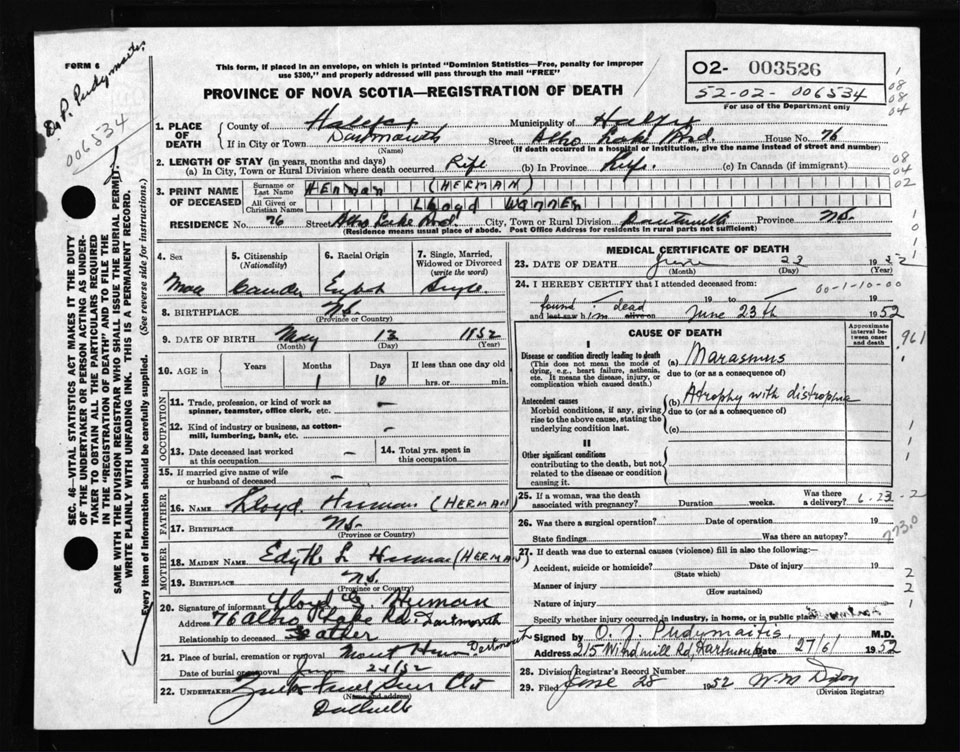 FORM 6
Dr P. Pudymaitis
006534
This form, if placed in an envelope, on which is printed "Dominion Statistics—Free, penalty for improper
use $300," and properly addressed will pass through the mail "FREE"
PROVINCE OF NOVA SCOTIA—REGISTRATION OF DEATH
02- 003526
52-02- 006534
For use of the Department only
1
08
08
04
08
04
02
1. PLACE OF DEATH
County of Halifax Municipality of Halifax
If in City or Town Dartmouth Street Albro Lake Rd. House No. 76
(Name) (If death occurred in a hospital or institution, give the name instead of street and number)
2. LENGTH OF STAY (in years, months and days)
(a) In City, Town or Rural Division where death occurred Life (b) In Province Life (c) In Canada (if immigrant)
3. PRINT NAME OF DECEASED
Surname or Last Name Herman (HERMAN)
All Given or Christian Names Lloyd Warren
RESIDENCE No. 76 Street Albro Lake Road. City, Town or Rural Division Dartmouth Province NS.
(Residence means usual place of abode. Post Office Address for residents in rural parts not sufficient)
SEC. 46—VITAL STATISTICS ACT MAKES IT THE DUTY
OF THE UNDERTAKER OR PERSON ACTING AS UNDER-
TAKER TO OBTAIN ALL THE PARTICULARS REQUIRED
IN THE "REGISTRATION OF DEATH" AND TO FILE THE
SAME WITH THE DIVISION REGISTRAR WHO SHALL ISSUE THE BURIAL PERMIT.
WRITE PLAINLY WITH UNFADING INK. THIS IS A PERMANENT RECORD.
Every item of information should be carefully supplied. (See reverse side for instructions.)
4. Sex
Male
5. Citizenship
(Nationality)
6. Racial Origin
7. Single, Married,
Widowed or Divorced
(write the word)
Single.
8. BIRTHPLACE NS.
(Province or Country)
9. DATE OF BIRTH May 13 1952
(Month) (Day) (Year)
10. AGE in Years Months Days If less than one day old
1 10 hrs. or min.
OCCUPATION
11. Trade, profession, or kind of work as
spinner, teamster, office clerk, etc. —
12. Kind of industry or business, as cotton-
mill, lumbering, bank, etc. —
13. Date deceased last worked
at this occupation —
14. Total yrs. spent in
this occupation
15. If married give name of wife
or husband of deceased —
FATHER
16. NAME Lloyd Herman (HERMAN)
17. BIRTHPLACE NS.
(Province or Country)
MOTHER
18. MAIDEN NAME Edythe L Herman (HERMAN)
19. BIRTHPLACE N.S.
(Province or Country)
20. Signature of informant Lloyd Herman
Address 76 Albro Lake Rd. Dartmouth
Relationship to deceased Father
21. Place of burial, cremation or removal Mount Herman Dartmouth
Date of burial or removal June 24/52
22. UNDERTAKER
(Name and address)
MEDICAL CERTIFICATE OF DEATH
23. DATE OF DEATH June 23 1952
(Month) (Day) (Year)
24. I HEREBY CERTIFY that I attended deceased from: 00-1-10-00
19 to 19
found dead
and last saw him alive on June 23th 1952
CAUSE OF DEATH
Approximate
interval between
onset
and death
961
I
Disease or condition directly leading to death
(This does not mean the mode of
dying, e.g., heart failure, asthenia,
etc. It means the disease, injury, or
complication which caused death.)
(a) Marasmus
due to (or as a consequence of)
Antecedent causes
Morbid conditions, if any, giving
rise to the above cause, stating the
underlying condition last.
(b) Atrophy with distrophia
due to (or as a consequence of)
(c)
II
Other significant conditions
contributing to the death, but not
related to the disease or condition
causing it.
25. If a woman, was the death
associated with pregnancy? Duration weeks. Was there
a delivery? 6-23-2
26. Was there a surgical operation? Date of operation 19
State findings Was there an autopsy? 773.0
27. If death was due to external causes (violence) fill in also the following:
Accident, suicide or homicide? Date of injury 19
(State which)
Manner of injury
(How sustained)
Nature of injury
Specify whether injury occurred in industry, in home, or in public place
Signed by O. J. Pudymaitis M.D.
Address 215 Windmill Rd, Dartmouth Date 27/6/ 1952
28. Division Registrar's Record Number
29. Filed June 28 1952 W. M. Dixon
(Division Registrar)